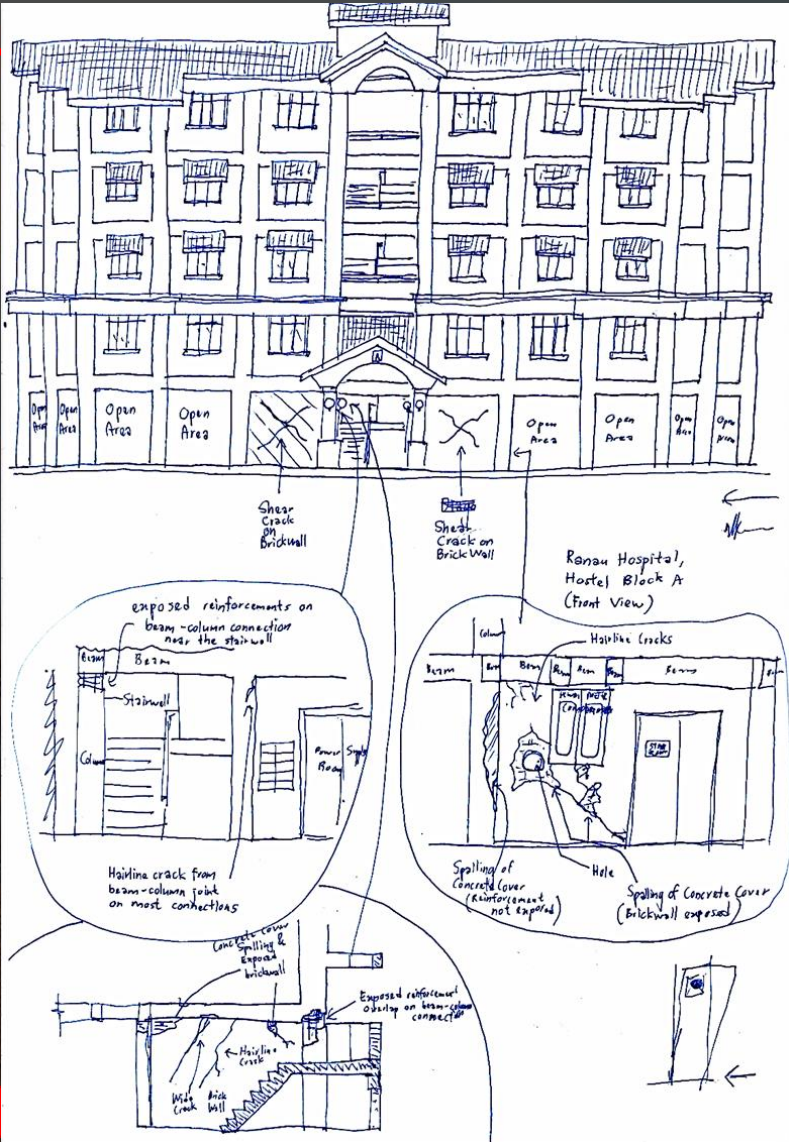 A
Open Area
Open Area
Open Area
Open Area
Open Area
Open Area
Open Area
Open Area
Shear
Crack
on
Brickwall
Shear
Crack on
Brick Wall
Ranau Hospital,
Hostel Block A
(Front View)
exposed reinforcements on
beam-column connection
near the stairwell
Beam
Beam
Stairwell
Column
Power
Room
Hairline crack from
beam-column joint
on most connections
Column
Hairline Cracks
Beam
Beam
Beam
Beam
Spalling of
Concrete Cover
(Reinforcement
not exposed)
Hole
Spalling of Concrete Cover
(Brickwall exposed)
Concrete Cover
Spalling &
Exposed
brickwall
Exposed reinforcement
overlap on beam-column
connection
Hairline
Crack
Wide
Crack
Brick
Wall